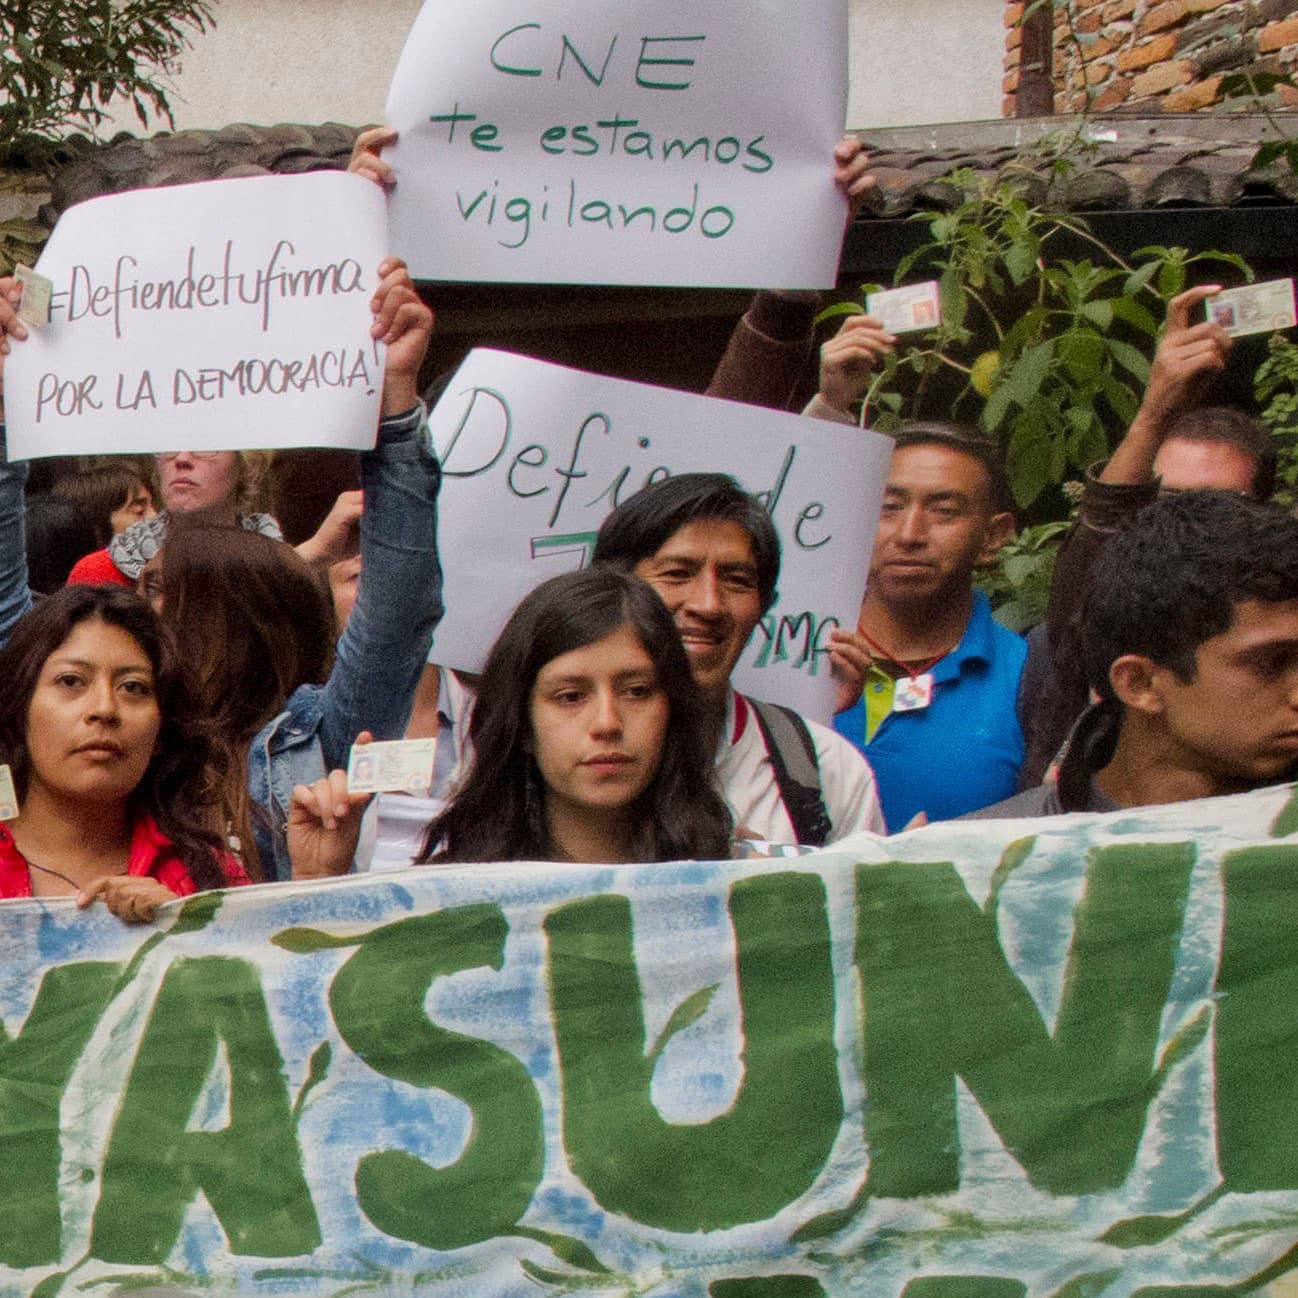 CNE
te estamos
vigilando
#Defiendetufirma
POR LA DEMOCRACIA!
Defiende
YASUNI